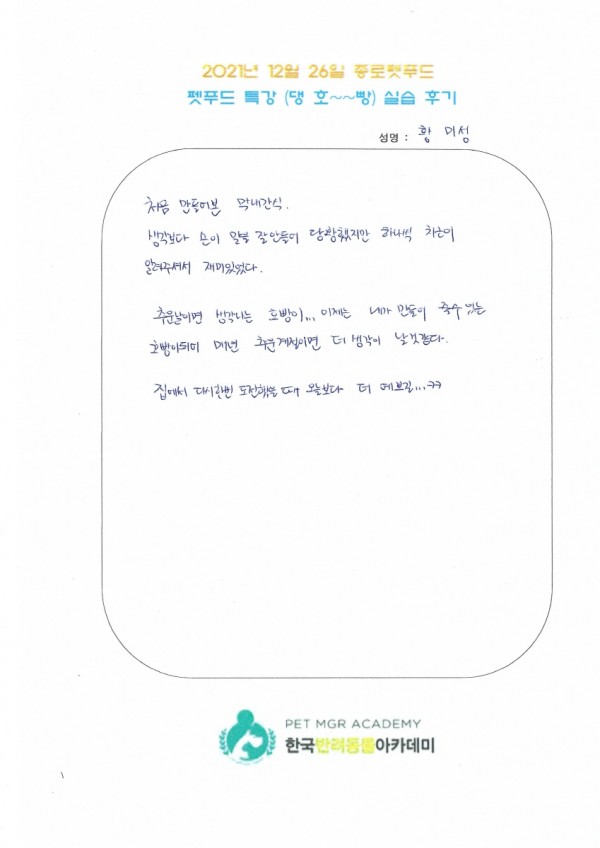 2021년 12월 26일 종로펫푸드
펫푸드 특강 (댕 호~~빵) 실습 후기
성명 : 황 미성
처음 만들어본 막내간식.
생각보다 손이 말을 잘안들어 당황했지만 하나씩 차근이
알려주셔서 재미있었다.
추운날이면 생각나는 호빵이... 이제는 내가 만들어 줄수 있는
호빵이되어 매년 추운계절이면 더 생각이 날것같다.
집에서 다시한번 도전했을 때 오늘보다 더 예쁘길...ㅋㅋ
PET MGR ACADEMY
한국반려동물아카데미